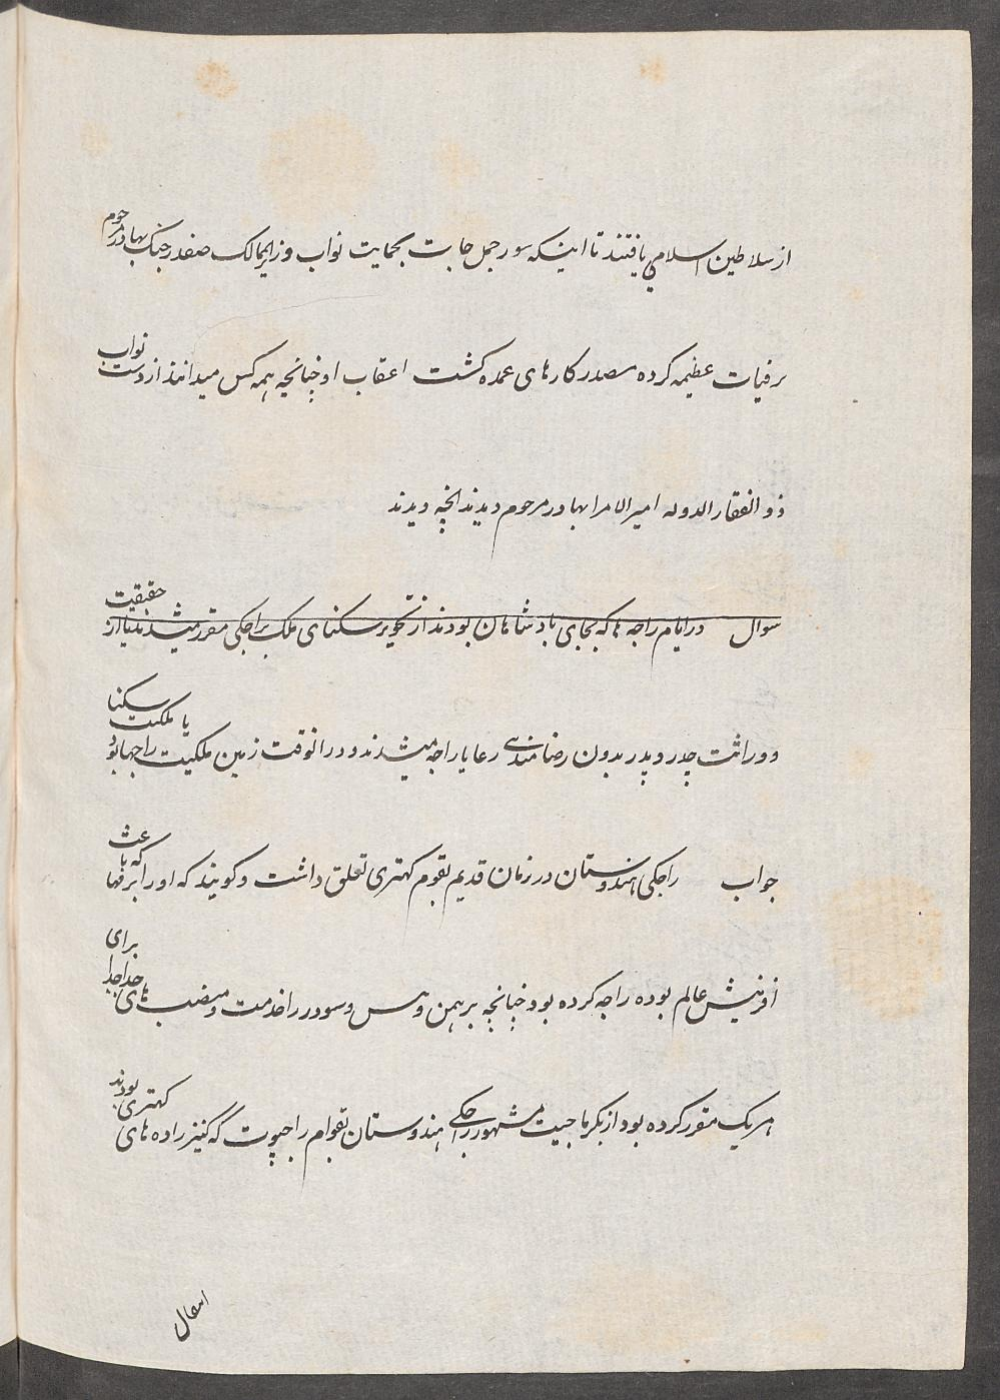 از سلاطین اسلامی یافتند تا اینکه سورجمل جات بحمایت نواب وزیرالممالک صفدرجنک بهادر مرحوم
ترقیات عظیمه کرده مصدر کارهای عمده کشت اعقاب او چنانچه همه کس میدانند از دست نواب
ذوالفقار الدوله امیر الامرا بهادر مرحوم دیدند انچه دیدند
سوال در ایام راجه ها که بجای بادشاهان بودند از تجویز سکنای ملک براجکی مقرر میشدند یا از حقیقت
و وراثت جد و پدر بدون رضامندی رعایا راجه میشدند و در انوقت زمین ملکیت راجها بود یا ملکیت سکنا
جواب راجکی هندوستان در زمان قدیم بقوم کهتری تعلق داشت و کویند که او را برفها که باعث
افرینش عالم بوده راجه کرده بود چنانچه برهمن و بیس و سودر را خدمت و منصب های جدا جدا برای
هریک مقرر کرده بود از بکرماجیت مشهور راجکی هندوستان بقوام راجپوت که کنیززاده های کهتری بودند